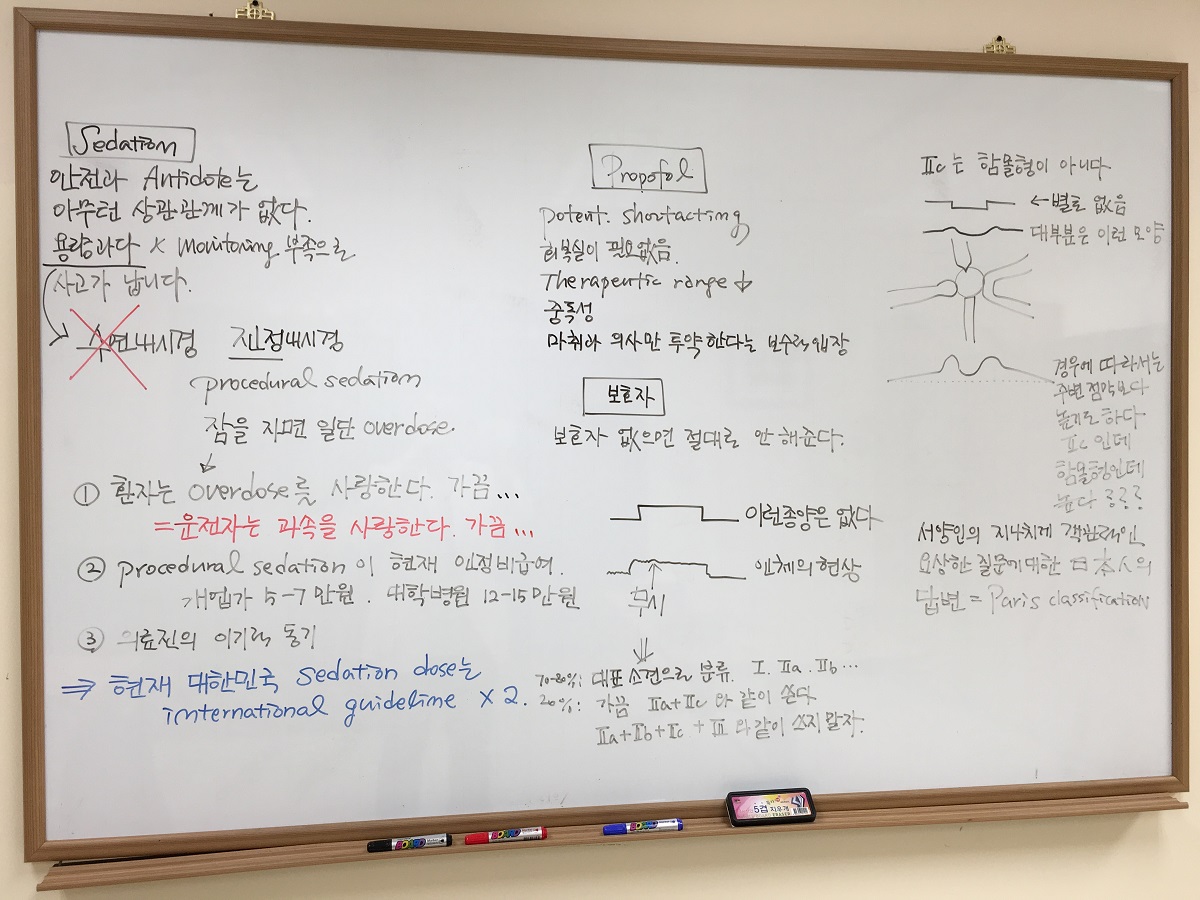 Sedation
안전과 Antidote는
아무런 상관관계가 없다.
용량과다 x monitoring 부족으로
사고가 납니다.
수면내시경 진정내시경
procedural sedation
잠을 자면 일단 overdose.
① 환자는 overdose를 사랑한다. 가끔...
=운전자는 과속을 사랑한다. 가끔...
② procedural sedation이 현재 인정비급여.
개인가 5-7만원. 대학병원 12-15만원
③ 의료진의 이기적 동기
⇒ 현재 대한민국 sedation dose는
international guideline x 2.
Propofol
potent. shortacting
회복실이 필요없음.
Therapeutic range ↓
중독성
마취과 의사만 투약한다는 보수적 입장
보호자
보호자 없으면 절대로 안 해준다.
이런종양은 없다
인체의 현상
무시
70-80%: 대표 소견으로 분류. I. IIa. IIb...
20%: 가끔 IIa+IIc 와 같이 쓴다
IIa+IIb+IIc+III 와 같이 쓰지 말자.
IIc는 함몰형이 아니다
←별로 없음
대부분은 이런 모양
경우에 따라서는
주변 점막보다
높기도 하다
IIc 인데
함몰형인데
높다 ㅎㅎㅎ
서양인의 지나치게 객관적인
요상한 질문에 대한 日本人의
답변 = Paris classification
BOARD
BOARD
BOARD
5겹 지우개
ERASER